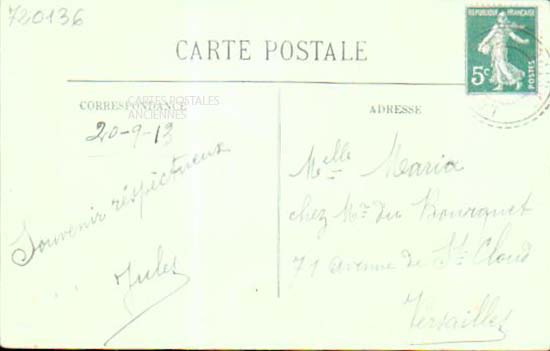 720136
CARTE POSTALE
REPUBLIQUE FRANÇAISE
5c
POSTES
CORRESPONDANCE
CARTES POSTALES
ANCIENNES
ADRESSE
20-9-13
Souvenir réspectueux
Jules
Melle Maria
chez Mr du Bourquet
71 avenue de St Cloud
Versailles